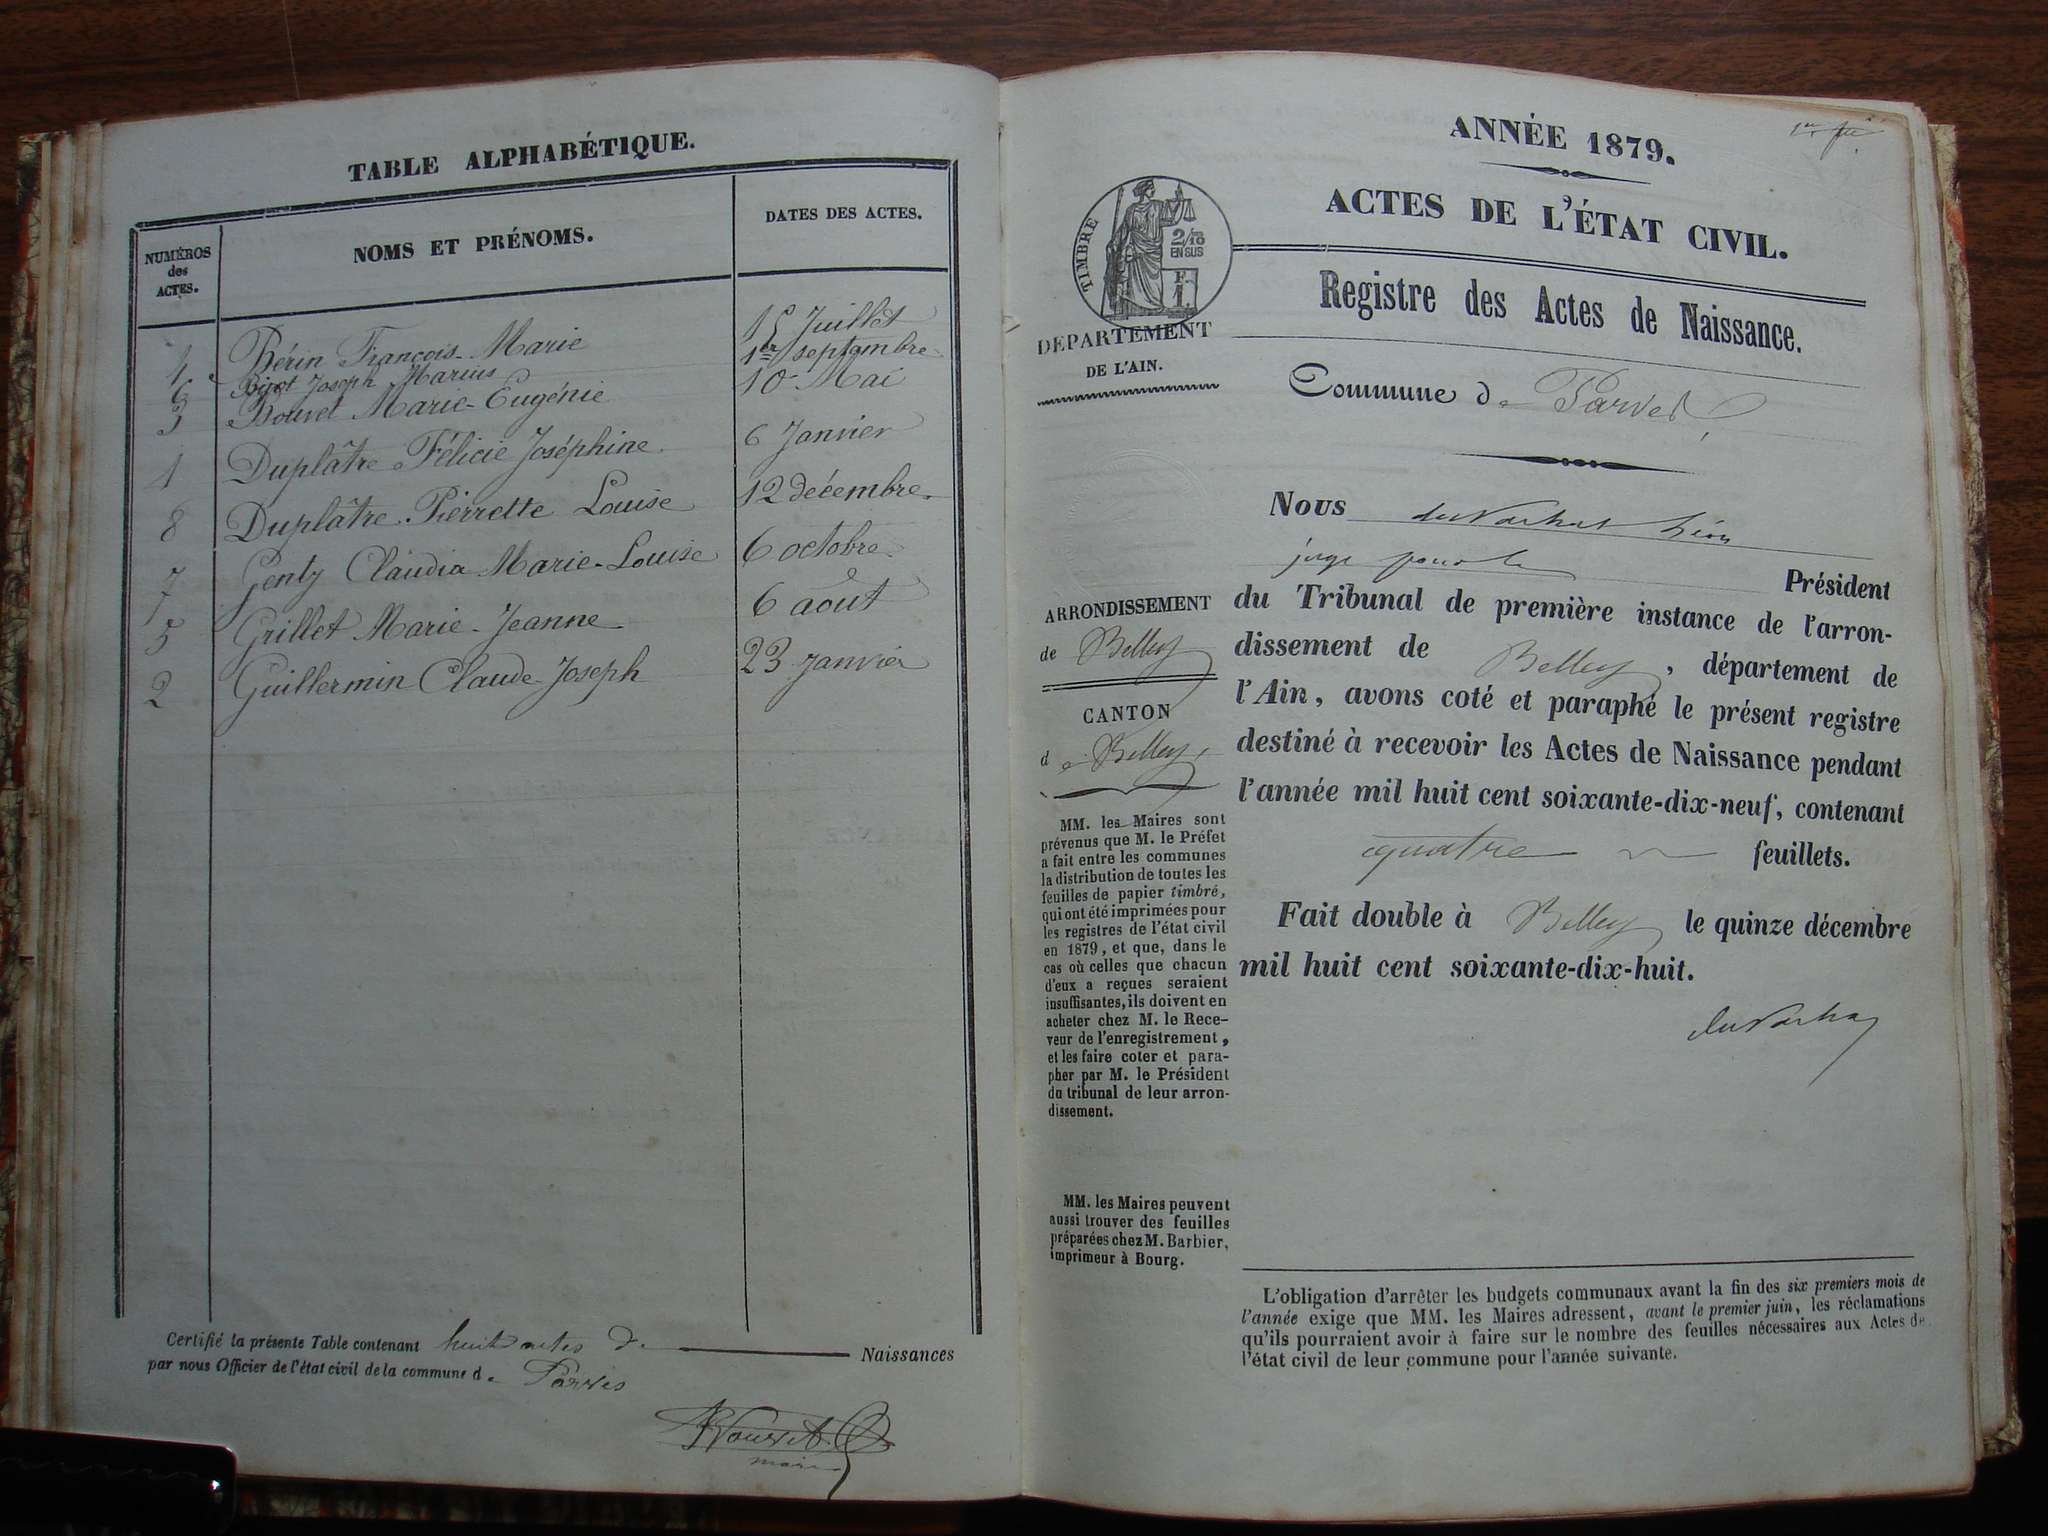 TABLE ALPHABÉTIQUE.
NUMÉROS
des
ACTES.
NOMS ET PRÉNOMS.
DATES DES ACTES.
4 Bérin François-Marie 15 Juillet
6 Bigot Joseph Marius 1er septembre
3 Bouvet Marie-Eugénie 10 Mai
1 Duplâtre Félicie Joséphine 6 Janvier
8 Duplâtre Pierrette Louise 12 décembre
7 Genty Claudia Marie-Louise 6 octobre
5 Grillet Marie-Jeanne 6 août
2 Guillermin Claude Joseph 23 Janvier
Certifié la présente Table contenant huit actes de Naissances
par nous Officier de l'état civil de la commune de Parves
maire
ANNÉE 1879.
ACTES DE L'ÉTAT CIVIL.
TIMBRE
2/10
EN SUS
F
1.
Registre des Actes de Naissance.
DÉPARTEMENT
DE L'AIN.
Commune de Parves
Nous
juge pour le Président
du Tribunal de première instance de l'arron-
dissement de Belley, département de
l'Ain, avons coté et paraphé le présent registre
destiné à recevoir les Actes de Naissance pendant
l'année mil huit cent soixante-dix-neuf, contenant
quatre feuillets.
Fait double à Belley le quinze décembre
mil huit cent soixante-dix-huit.
ARRONDISSEMENT
de Belley
CANTON
de Belley
MM. les Maires sont
prévenus que M. le Préfet
a fait entre les communes
la distribution de toutes les
feuilles de papier timbré,
qui ont été imprimées pour
les registres de l'état civil
en 1879, et que, dans le
cas où celles que chacun
d'eux a reçues seraient
insuffisantes, ils doivent en
acheter chez M. le Rece-
veur de l'enregistrement,
et les faire coter et para-
pher par M. le Président
du tribunal de leur arron-
dissement.
MM. les Maires peuvent
aussi trouver des feuilles
préparées chez M. Barbier,
imprimeur à Bourg.
L'obligation d'arrêter les budgets communaux avant la fin des six premiers mois de
l'année exige que MM. les Maires adressent, avant le premier juin, les réclamations
qu'ils pourraient avoir à faire sur le nombre des feuilles nécessaires aux Actes de
l'état civil de leur commune pour l'année suivante.